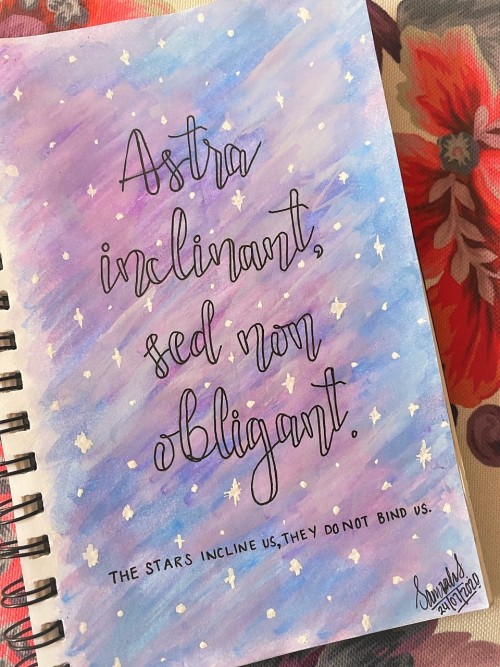 Astra
inclinant,
sed non
obligant.
THE STARS INCLINE US, THEY DO NOT BIND US.